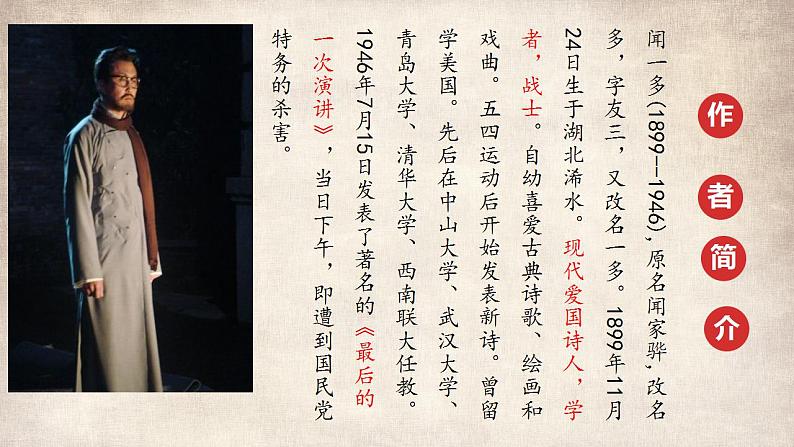 作者简介
闻一多(1899—1946),原名闻家骅,改名
多,字友三,又改名一多。1899年11月
24日生于湖北浠水。现代爱国诗人,学
者,战士。自幼喜爱古典诗歌、绘画和
戏曲。五四运动后开始发表新诗。曾留
学美国。先后在中山大学、武汉大学、
青岛大学、清华大学、西南联大任教。
1946年7月15日发表了著名的《最后的
一次演讲》,当日下午,即遭到国民党
特务的杀害。